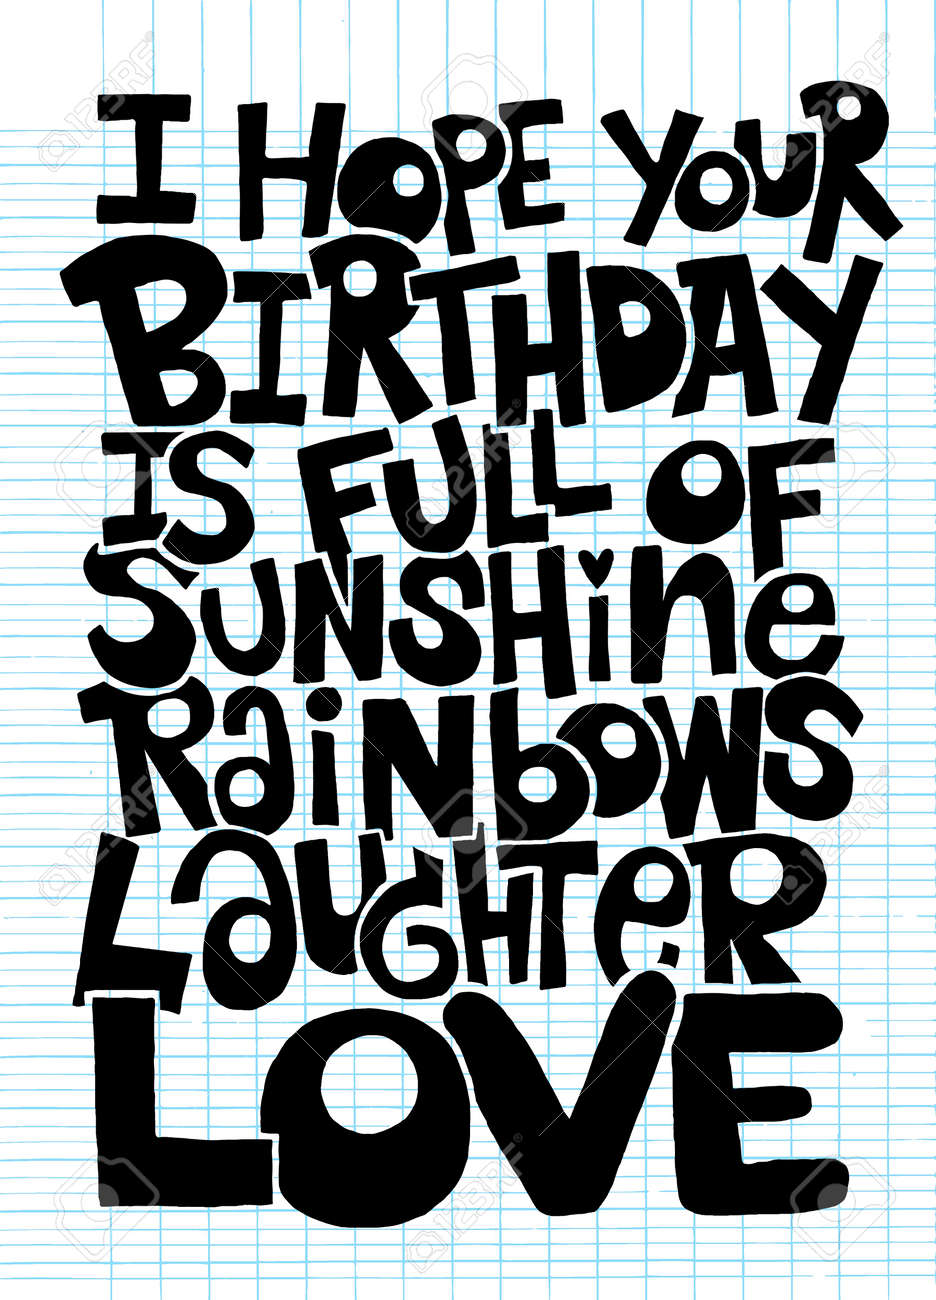 I HOPE YOUR
BIRTHDAY
IS FULL OF
SUNSHiNe
RaiNboWS
LauGHTeR
LOVE